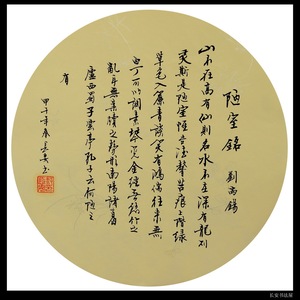 陋室銘
劉禹錫
山不在高有仙則名水不在深有龍則
灵斯是陋室惟吾德馨苔痕上階緑
草色入簾青談笑有鴻儒往來無
白丁可以調素琴閱金經無絲竹之
亂耳無案牘之勞形南陽諸葛
廬西蜀子雲亭孔子云何陋之
有
甲午年春